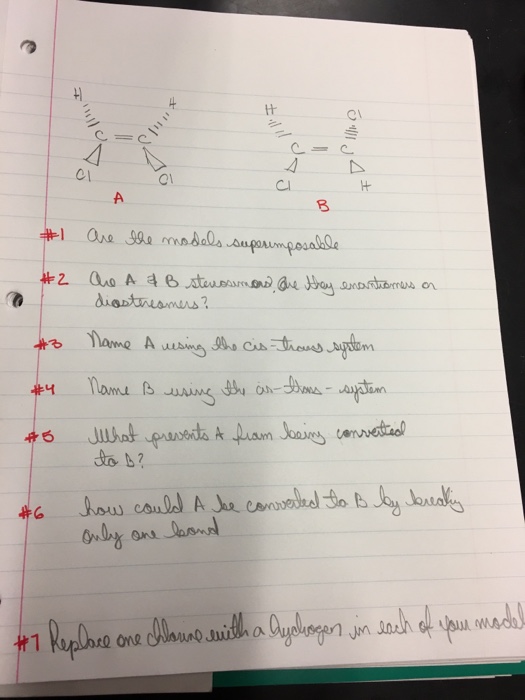 H H H Cl
C = C C = C
Cl Cl Cl H
A B
#1 are the models superimposable
#2 Are A & B are they enantiomers or
diastereomers?
#3 Name A using the cis-trans system
#4 Name B using the cis-trans-system
#5 What prevents A from being converted
to B?
#6 how could A be converted to B by breaking
only one bond
#7 Replace one chlorine with a hydrogen in each of your model